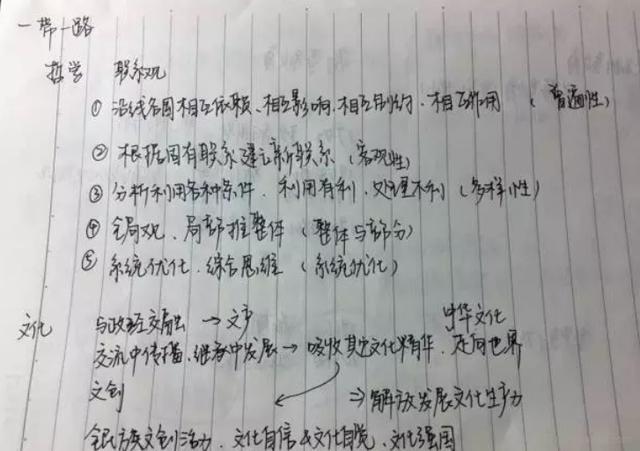 一带一路
哲学 联系观
① 沿线各国相互依赖、相互影响、相互制约、相互作用 (普遍性)
② 根据固有联系建立新联系 (客观性)
③ 分析利用各种条件、利用有利、处理不利 (多样性)
④ 全局观、局部推整体 (整体与部分)
⑤ 系统优化、综合思维 (系统优化)
文化 与政经交融 → 文
中华文化
交流中传播、继承中发展 → 吸收其它文化精华、走向世界
文创 ⇒ 解放发展文化生产力
全民族文创活力、文化自信&文化自觉、文化强国